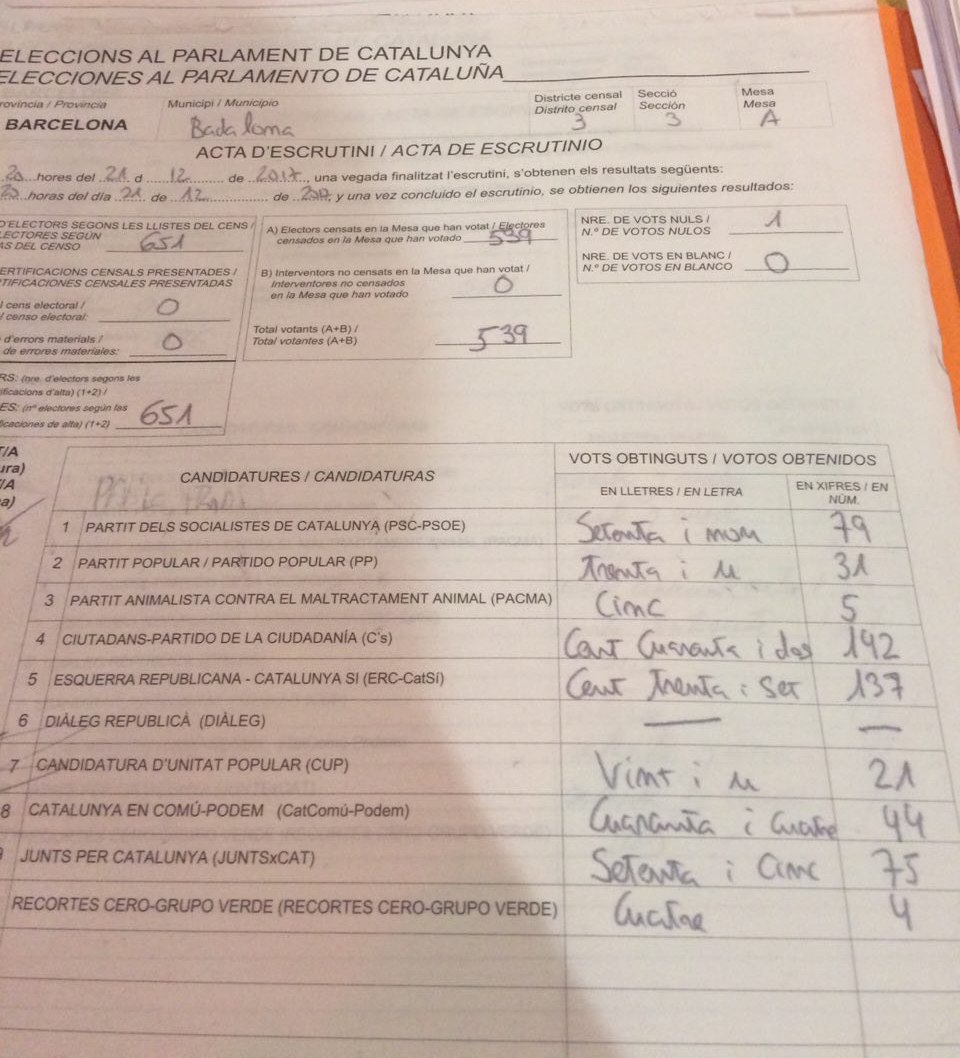 ELECCIONS AL PARLAMENT DE CATALUNYA
ELECCIONES AL PARLAMENTO DE CATALUÑA
rovíncia / Provincia
Municipi / Municipio
Districte censal
Distrito censal
Secció
Sección
Mesa
Mesa
BARCELONA
Badalona
3
3
A
ACTA D'ESCRUTINI / ACTA DE ESCRUTINIO
20 hores del 21 d 12 de 2017, una vegada finalitzat l'escrutini, s'obtenen els resultats següents:
20 horas del día 21 de 12 de 2017, y una vez concluido el escrutinio, se obtienen los siguientes resultados:
D'ELECTORS SEGONS LES LLISTES DEL CENS /
LECTORES SEGÚN
AS DEL CENSO
651
ERTIFICACIONS CENSALS PRESENTADES /
TIFICACIONES CENSALES PRESENTADAS
l cens electoral /
l censo electoral:
0
d'errors materials /
de errores materiales:
0
RS: (nre. d'electors segons les
ificacions d'alta) (1+2) /
ES: (nº electores según las
ficaciones de alta) (1+2)
651
A) Electors censats en la Mesa que han votat / Electores
censados en la Mesa que han votado
539
B) Interventors no censats en la Mesa que han votat /
Interventores no censados
en la Mesa que han votado
0
Total votants (A+B) /
Total votantes (A+B)
539
NRE. DE VOTS NULS /
N.º DE VOTOS NULOS
1
NRE. DE VOTS EN BLANC /
N.º DE VOTOS EN BLANCO
0
T/A
ura)
/A
a)
CANDIDATURES / CANDIDATURAS
VOTS OBTINGUTS / VOTOS OBTENIDOS
EN LLETRES / EN LETRA
EN XIFRES / EN
NÚM.
1 PARTIT DELS SOCIALISTES DE CATALUNYA (PSC-PSOE) Setenta i nou 79
2 PARTIT POPULAR / PARTIDO POPULAR (PP) Trenta i u 31
3 PARTIT ANIMALISTA CONTRA EL MALTRACTAMENT ANIMAL (PACMA) Cinc 5
4 CIUTADANS-PARTIDO DE LA CIUDADANÍA (C's) Cent Cuaranta i dos 142
5 ESQUERRA REPUBLICANA - CATALUNYA SI (ERC-CatSí) Cent Trenta i Set 137
6 DIÀLEG REPUBLICÀ (DIÀLEG) — —
7 CANDIDATURA D'UNITAT POPULAR (CUP) Vint i u 21
8 CATALUNYA EN COMÚ-PODEM (CatComú-Podem) Cuaranta i Cuatre 44
9 JUNTS PER CATALUNYA (JUNTSxCAT) Setenta i Cinc 75
RECORTES CERO-GRUPO VERDE (RECORTES CERO-GRUPO VERDE) Cuatre 4